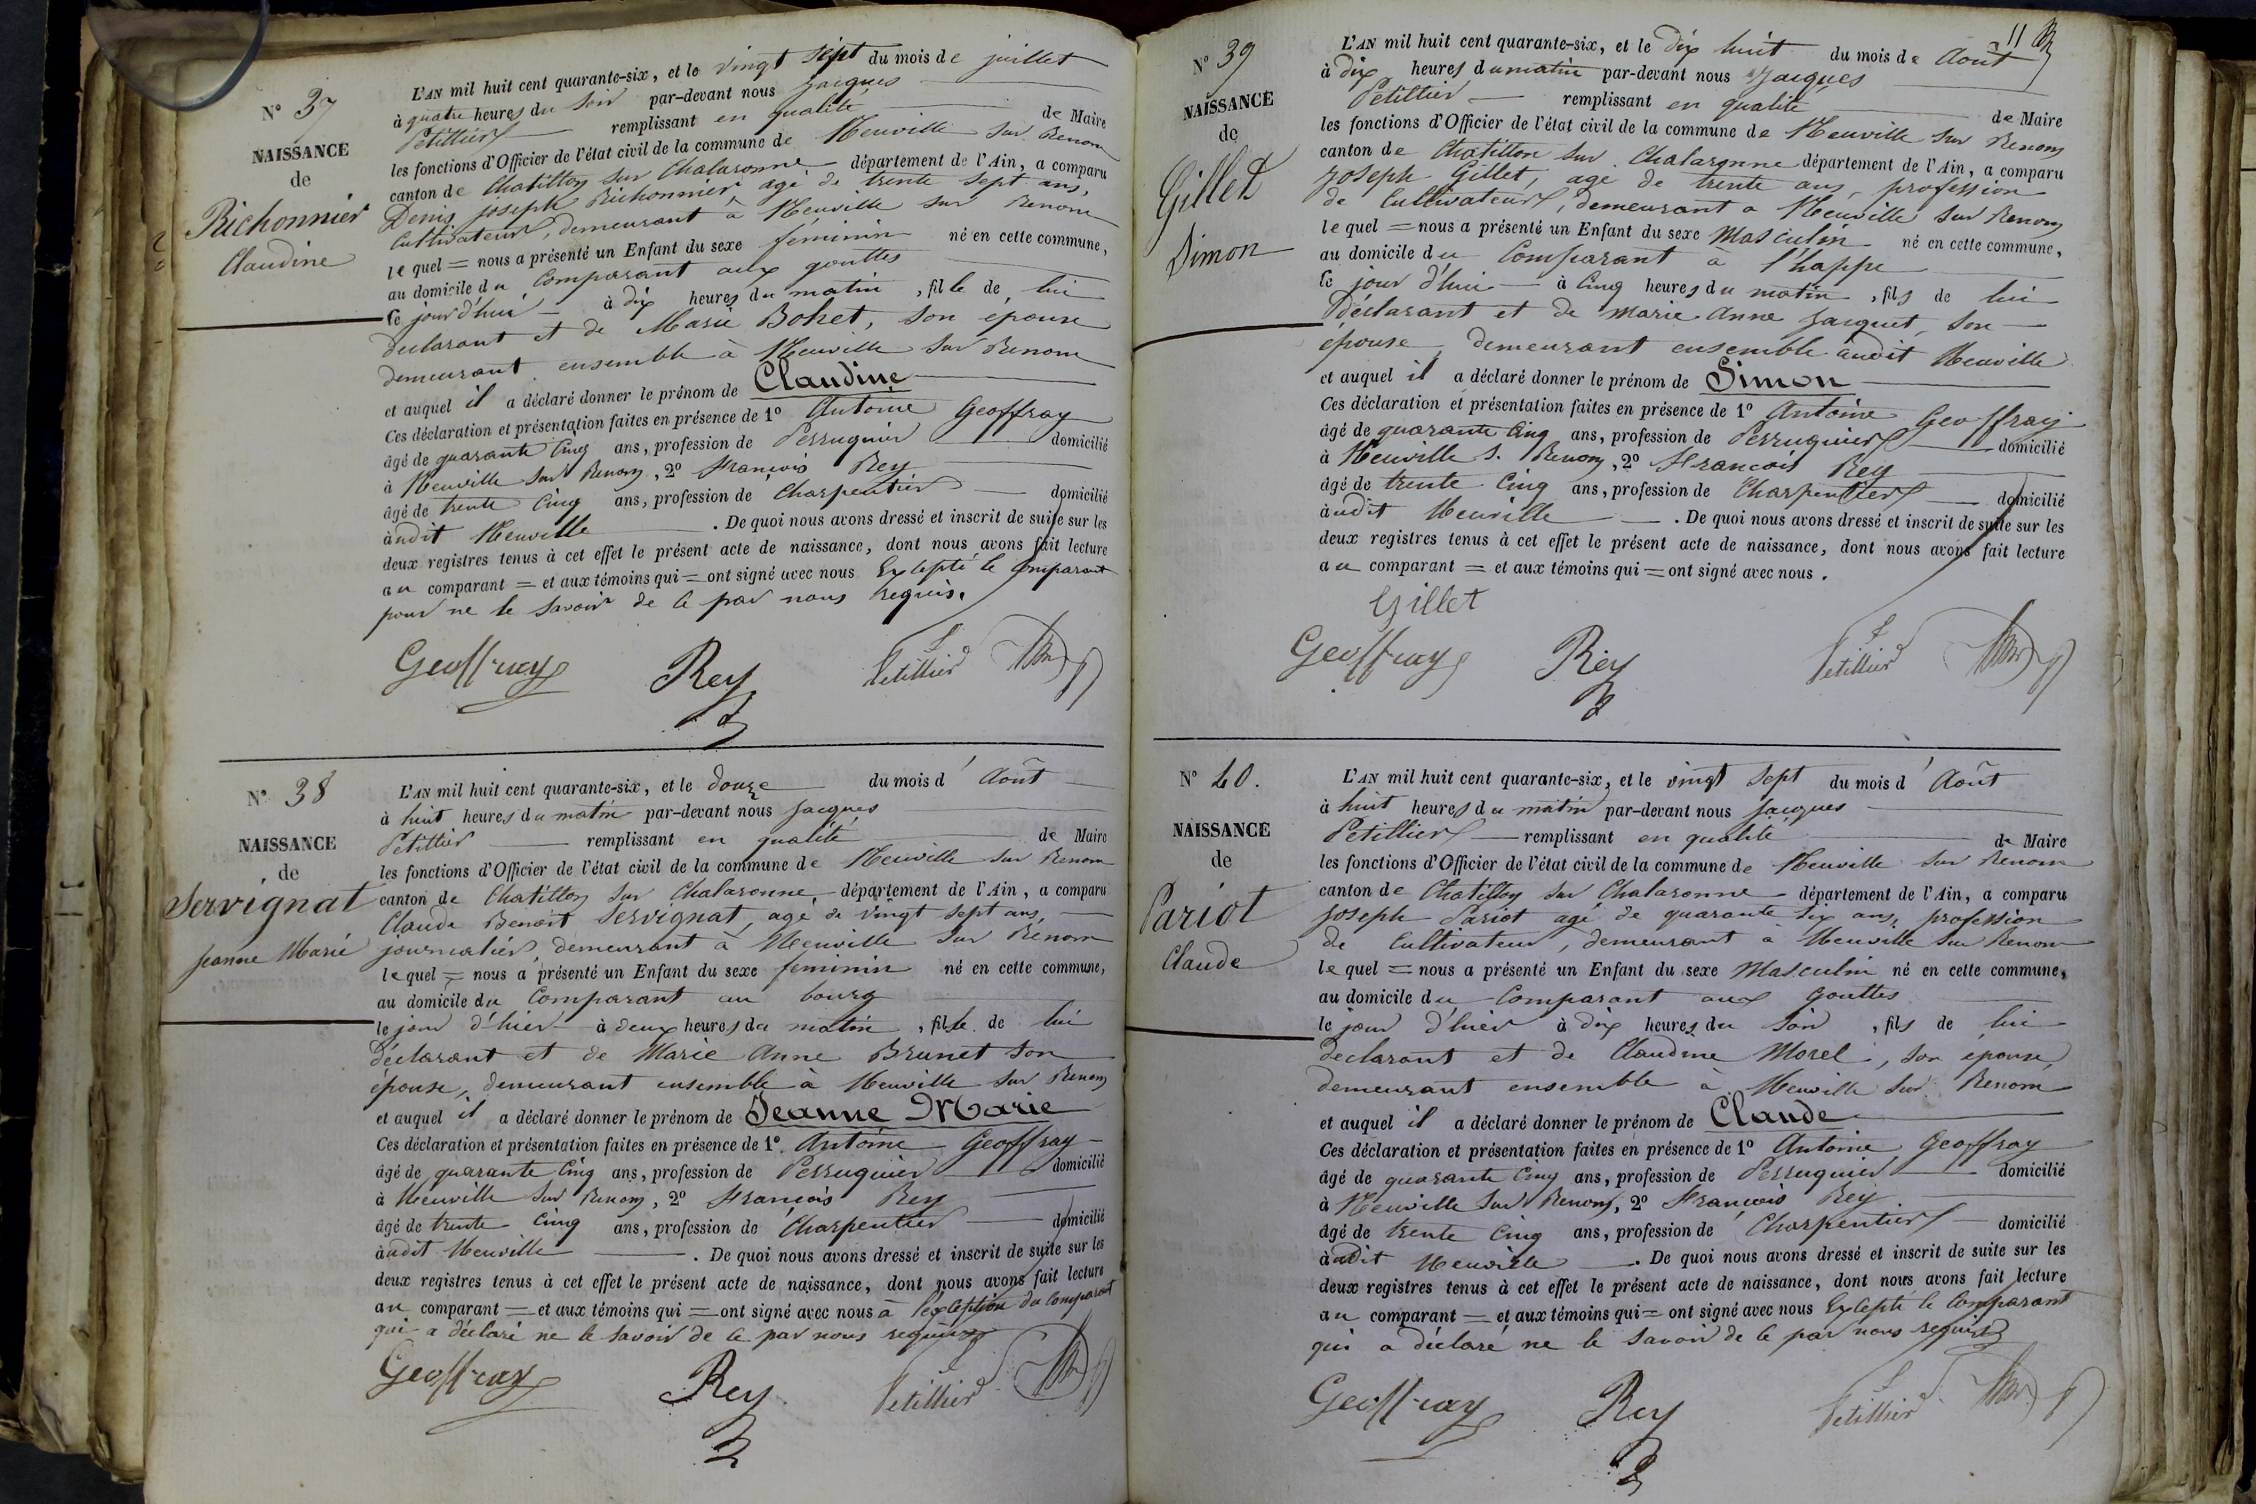 N° 37
NAISSANCE
de
Richonnier
Claudine
L'AN mil huit cent quarante-six, et le vingt sept du mois de juillet
à quatre heures du soir par-devant nous Jacques
Petillier remplissant en qualité de Maire
les fonctions d'Officier de l'état civil de la commune de Neuville sur Renom
canton de Chatillon sur Chalaronne département de l'Ain, a comparu
Denis joseph Richonnier, agé de trente sept ans,
Cultivateur, demeurant à Neuville sur Renom
le quel = nous a présenté un Enfant du sexe feminin né en cette commune,
au domicile du Comparant aux gouttes
le jour d'hui à dix heures du matin, fille de lui
declarant et de Marie Bohet, son épouse
demeurant ensemble à Neuville sur Renom
et auquel il a déclaré donner le prénom de Claudine
Ces déclaration et présentation faites en présence de 1° Antoine Geoffray
âgé de quarante Cinq ans, profession de Perruquier domicilié
à Neuville sur Renom, 2° François Rey
âgé de trente Cinq ans, profession de Charpentier domicilié
audit Neuville . De quoi nous avons dressé et inscrit de suite sur les
deux registres tenus à cet effet le présent acte de naissance, dont nous avons fait lecture
au comparant = et aux témoins qui = ont signé avec nous Excepté le Comparant
pour ne le savoir de ce par nous requis.
Geoffray Rey Petillier
N° 38
NAISSANCE
de
Servignat
Jeanne Marie
L'AN mil huit cent quarante-six, et le douze du mois d'Août
à huit heures du matin par-devant nous Jacques
Petillier remplissant en qualité de Maire
les fonctions d'Officier de l'état civil de la commune de Neuville sur Renom
canton de Chatillon sur Chalaronne, département de l'Ain, a comparu
Claude Benoit Servignat, agé de vingt sept ans,
journalier, demeurant à Neuville sur Renom
le quel = nous a présenté un Enfant du sexe feminin né en cette commune,
au domicile du Comparant au bourg
le jour d'hier à deux heures du matin, fille de lui
Déclarant et de Marie Anne Brunet son
épouse, demeurant ensemble à Neuville sur Renom
et auquel il a déclaré donner le prénom de Jeanne Marie
Ces déclaration et présentation faites en présence de 1° Antoine Geoffray
âgé de quarante Cinq ans, profession de Perruquier domicilié
à Neuville sur Renom, 2° François Rey
âgé de trente Cinq ans, profession de Charpentier domicilié
audit Neuville . De quoi nous avons dressé et inscrit de suite sur les
deux registres tenus à cet effet le présent acte de naissance, dont nous avons fait lecture
au comparant = et aux témoins qui = ont signé avec nous à l'exception du Comparant
qui a déclaré ne le savoir de ce par nous requis
Geoffray Rey Petillier
11
N° 39
NAISSANCE
de
Gillet
Simon
L'AN mil huit cent quarante-six, et le dix huit du mois de Août
à dix heures du matin par-devant nous Jacques
Petillier remplissant en qualité de Maire
les fonctions d'Officier de l'état civil de la commune de Neuville sur Renom
canton de Chatillon sur Chalaronne département de l'Ain, a comparu
Joseph Gillet, agé de trente ans, profession
de Cultivateur, demeurant a Neuville sur Renom
le quel = nous a présenté un Enfant du sexe Masculin né en cette commune,
au domicile du Comparant à l'happe
le jour d'hui à Cinq heures du matin, fils de lui
Déclarant et de Marie Anne Jacquet, son
épouse demeurant ensemble audit Neuville
et auquel il a déclaré donner le prénom de Simon
Ces déclaration et présentation faites en présence de 1° Antoine Geoffray
âgé de quarante Cinq ans, profession de Perruquier domicilié
à Neuville s. Renom, 2° François Rey
âgé de trente Cinq ans, profession de Charpentier domicilié
audit Neuville . De quoi nous avons dressé et inscrit de suite sur les
deux registres tenus à cet effet le présent acte de naissance, dont nous avons fait lecture
au comparant = et aux témoins qui = ont signé avec nous.
Gillet
Geoffray Rey Petillier
N° 40.
NAISSANCE
de
Pariot
Claude
L'AN mil huit cent quarante-six, et le vingt sept du mois d'Août
à huit heures du matin par-devant nous Jacques
Petillier remplissant en qualité de Maire
les fonctions d'Officier de l'état civil de la commune de Neuville sur Renom
canton de Chatillon sur Chalaronne département de l'Ain, a comparu
Joseph Pariot agé de quarante six ans, profession
de Cultivateur, demeurant à Neuville sur Renom
le quel = nous a présenté un Enfant du sexe Masculin né en cette commune,
au domicile du Comparant aux Gouttes
le jour d'hier à dix heures du soir, fils de lui
declarant et de Claudine Morel, son épouse,
demeurant ensemble à Neuville sur Renom
et auquel il a déclaré donner le prénom de Claude
Ces déclaration et présentation faites en présence de 1° Antoine Geoffray
âgé de quarante Cinq ans, profession de Perruquier domicilié
à Neuville sur Renom, 2° François Rey
âgé de trente Cinq ans, profession de Charpentier domicilié
audit Neuville . De quoi nous avons dressé et inscrit de suite sur les
deux registres tenus à cet effet le présent acte de naissance, dont nous avons fait lecture
au comparant = et aux témoins qui = ont signé avec nous Excepté le Comparant
qui a déclaré ne le savoir de ce par nous requis
Geoffray Rey Petillier